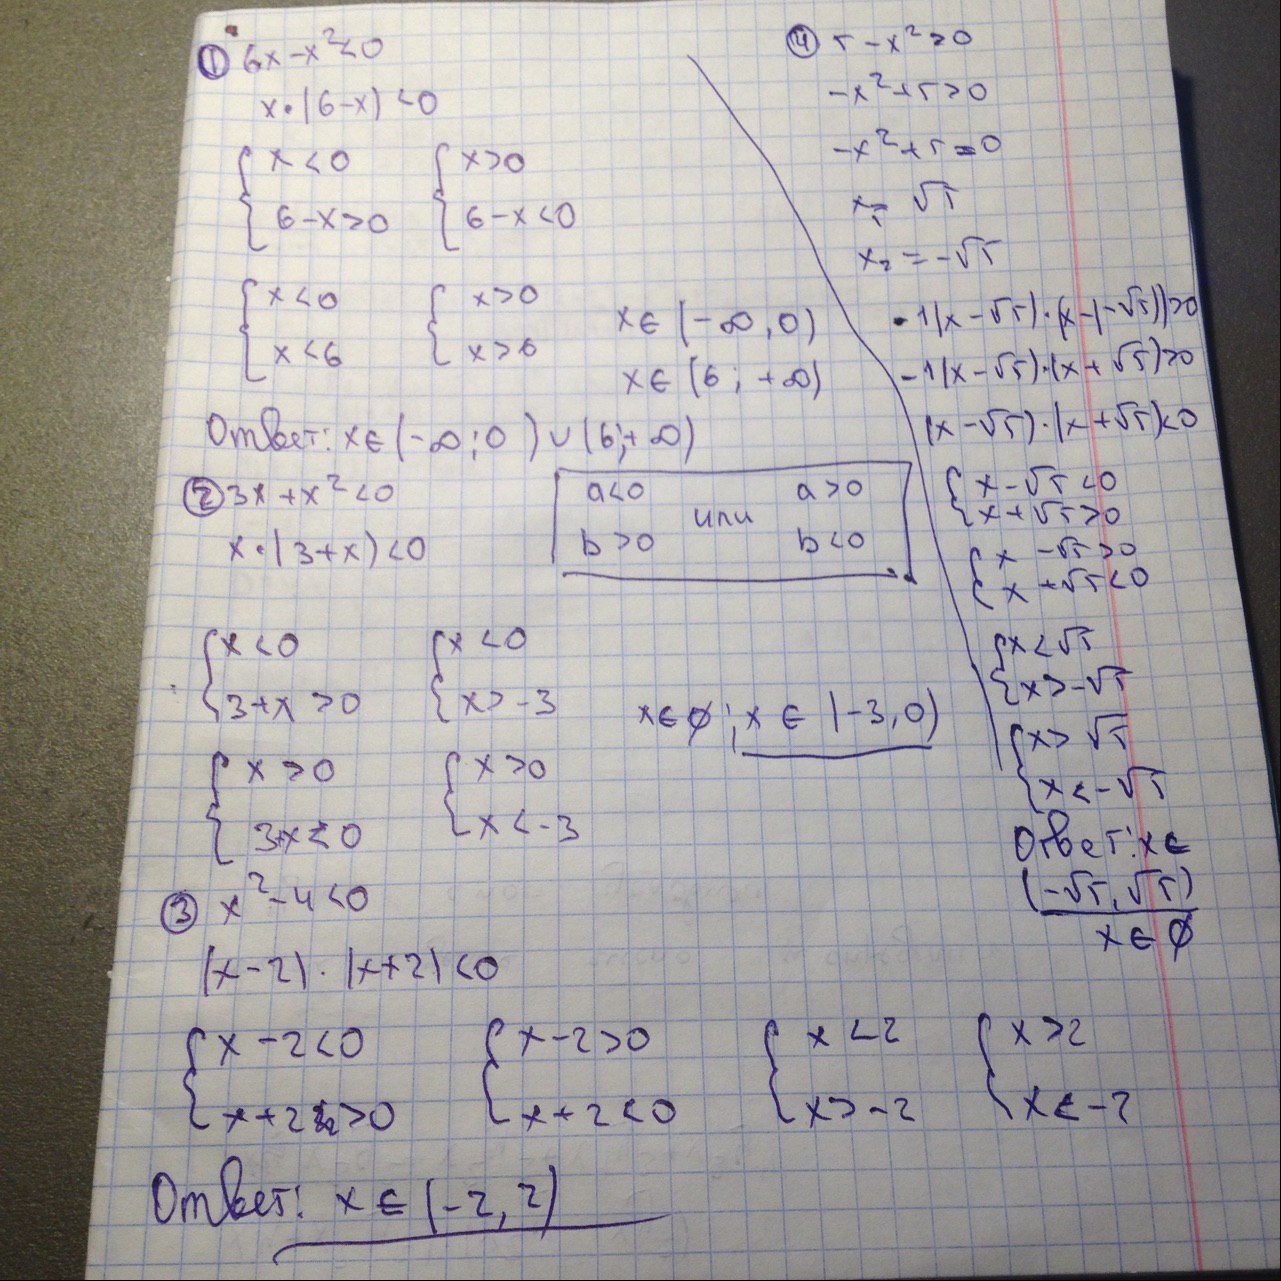 ① 6x-x²<0
x·(6-x)<0
{x<0 {x>0
6-x>0 6-x<0
{x<0 {x>0
x<6 x>6
x∈(-∞,0)
x∈(6; +∞)
Ответ: x∈(-∞;0)∪(6;+∞)
② 3x+x²<0
x·(3+x)<0
a<0 или a>0
b>0 b<0
{x<0 {x<0
3+x>0 x>-3
x∈ø; x∈(-3,0)
{x>0 {x>0
3+x<0 x<-3
③ x²-4<0
(x-2)·(x+2)<0
{x-2<0 {x-2>0 {x<2 {x>2
x+2>0 x+2<0 x>-2 x<-2
Ответ: x∈(-2,2)
④ 5-x²>0
-x²+5>0
-x²+5=0
x₁=√5
x₂=-√5
-1(x-√5)·(x-(-√5))>0
-1(x-√5)·(x+√5)>0
(x-√5)·(x+√5)<0
{x-√5<0
x+√5>0
{x-√5>0
x+√5<0
{x<√5
x>-√5
{x>√5
x<-√5
Ответ: x∈
(-√5,√5)
x∈ø